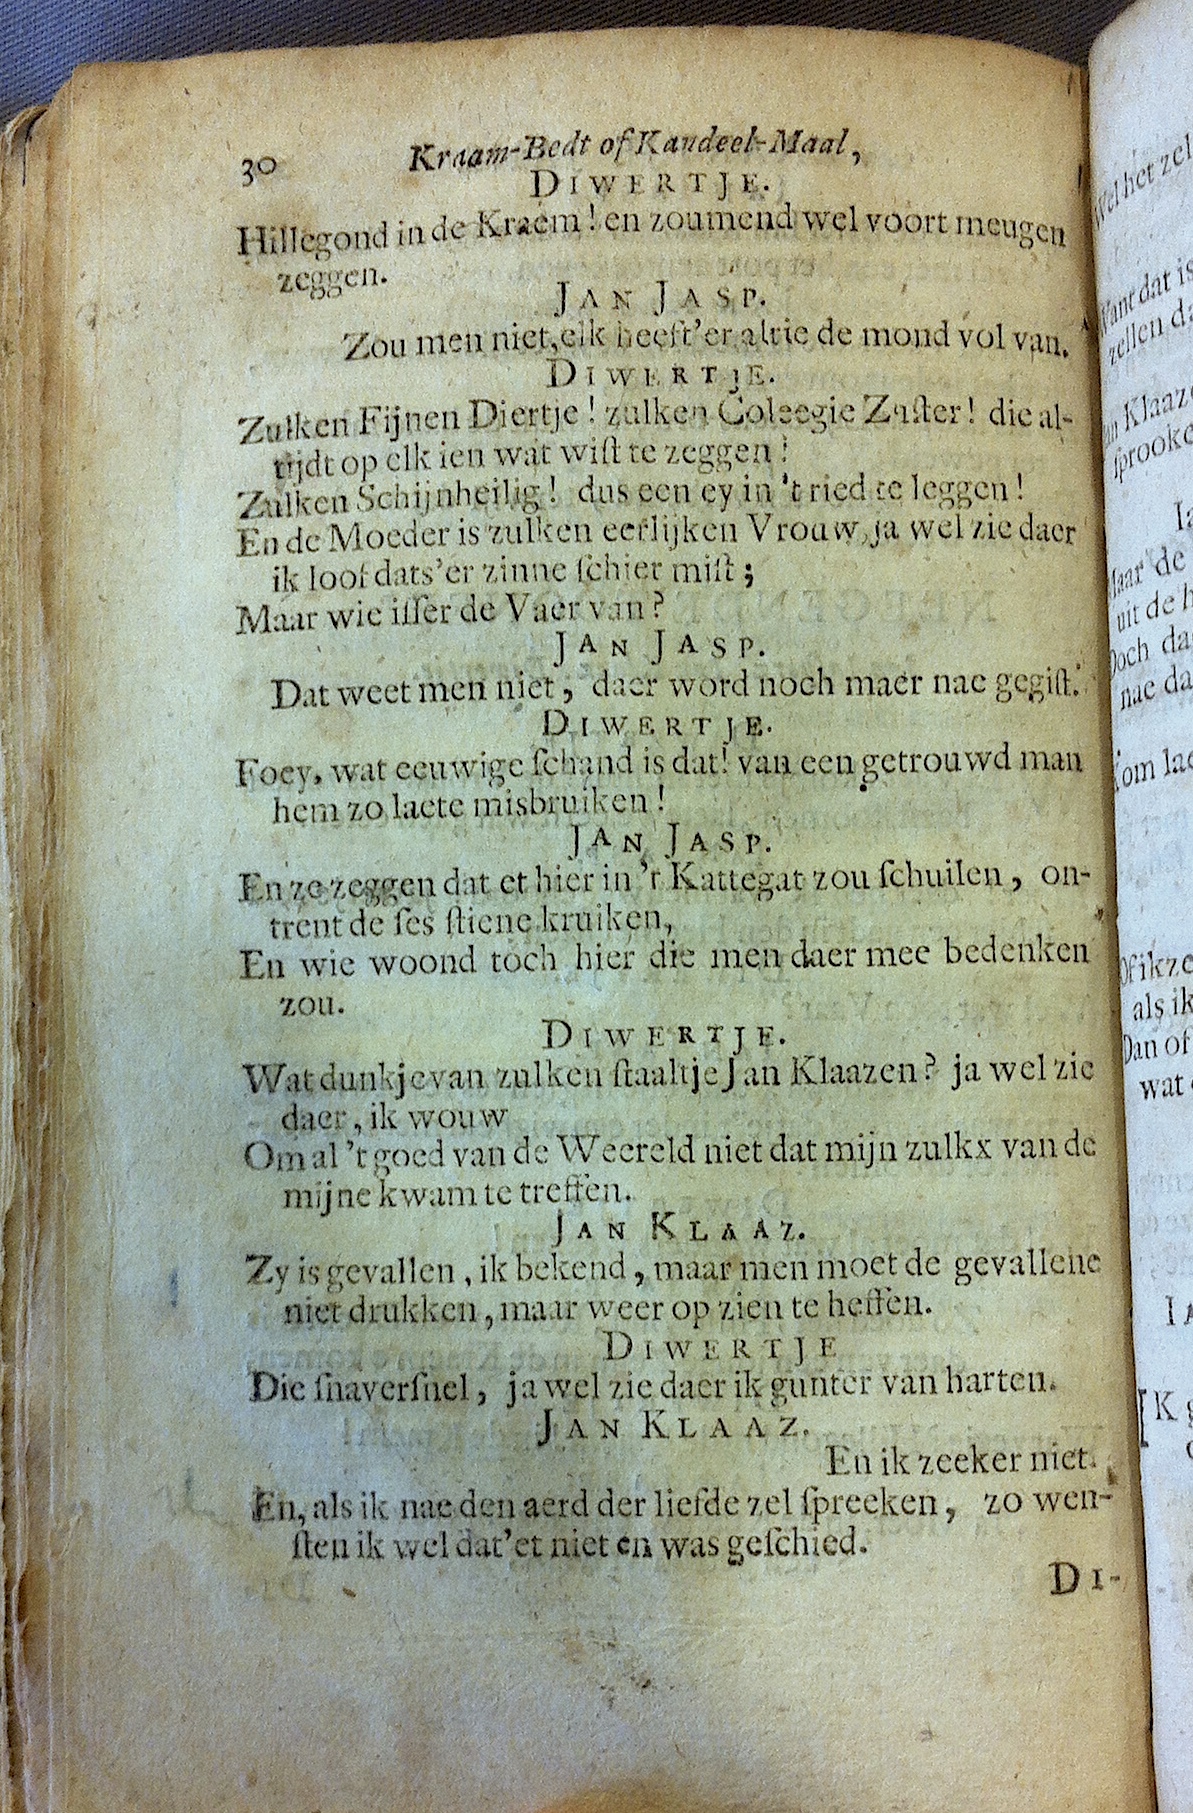 30 Kraam-Bedt of Kandeel-Maal,
DIWERTJE.
Hillegond in de Kraem! en zoumend wel voort meugen
zeggen.
JAN JASP.
Zou men niet, elk heeft'er altie de mond vol van.
DIWERTJE.
Zulken Fijnen Diertje! zulken Coleegie Zuster! die al-
tijdt op elk ien wat wiſt te zeggen!
Zulken Schijnheilig! dus een ey in 't ried te leggen!
En de Moeder is zulken eerlijken Vrouw, ja wel zie daer
ik loof dats'er zinne ſchier miſt;
Maar wie iſſer de Vaer van?
JAN JASP.
Dat weet men niet, daer word noch maer nae gegiſt.
DIWERTJE.
Foey, wat eeuwige ſchand is dat! van een getrouwd man
hem zo laete misbruiken!
JAN JASP.
En ze zeggen dat et hier in 't Kattegat zou ſchuilen, on-
trent de ſes ſtiene kruiken,
En wie woond toch hier die men daer mee bedenken
zou.
DIWERTJE.
Wat dunkje van zulken ſtaaltje Jan Klaazen? ja wel zie
daer, ik wouw
Om al 't goed van de Weereld niet dat mijn zulkx van de
mijne kwam te treffen.
JAN KLAAZ.
Zy is gevallen, ik bekend, maar men moet de gevallene
niet drukken, maar weer op zien te heffen.
DIWERTJE
Die ſnaverſnel, ja wel zie daer ik gunter van harten.
JAN KLAAZ.
En ik zeeker niet.
En, als ik nae den aerd der liefde zel ſpreeken, zo wen-
ſten ik wel dat'et niet en was geſchied.
DI-
Wel het zel
Want dat is
zellen da
Klaaze
ſprooke
Maar de
uit de h
Doch da
nae da
Kom lae
Of ik ze
als ik
Dan of
wat